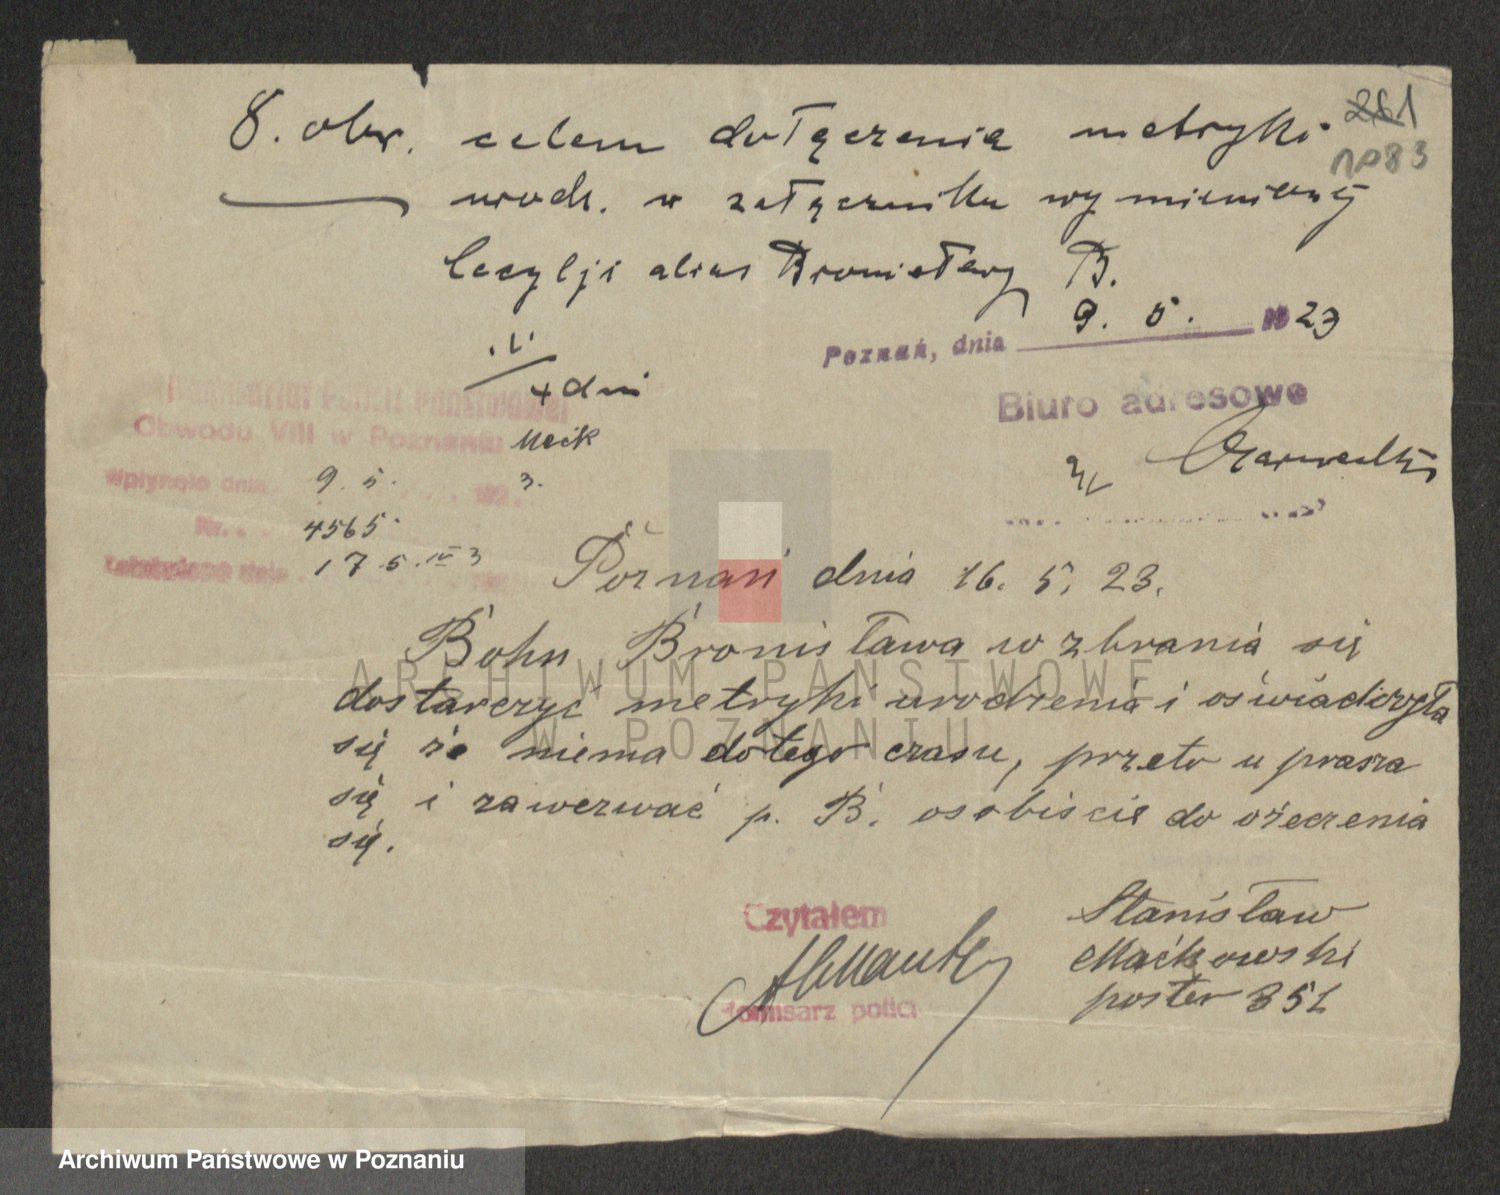 8. obw. celem dołączenia metryki
urodz. w załączniku wymienionej
Cecylji alias Bronisławy B.
261
83
Poznań, dnia 9. 5. 1923
Biuro adresowe
4 dni
Maćk
Komisarjat Policji Państwowej
Obwodu VIII w Poznaniu
Wpłynęło dnia 9. 5. 192 3.
Nr. 4565.
Załatwiono dnia 17. 5. 3
Poznań dnia 16. 5. 23.
Bohn Bronisława wzbrania się
dostarczyć metryki urodzenia i oświadczyła
się że niema dotego czasu, przeto uprasza
się i zawezwać p. B. osobiście do orzeczenia
się.
Czytałem
Komisarz policji
Stanisław
Maćkowski
poster 851
ARCHIWUM PAŃSTWOWE
W POZNANIU
Archiwum Państwowe w Poznaniu